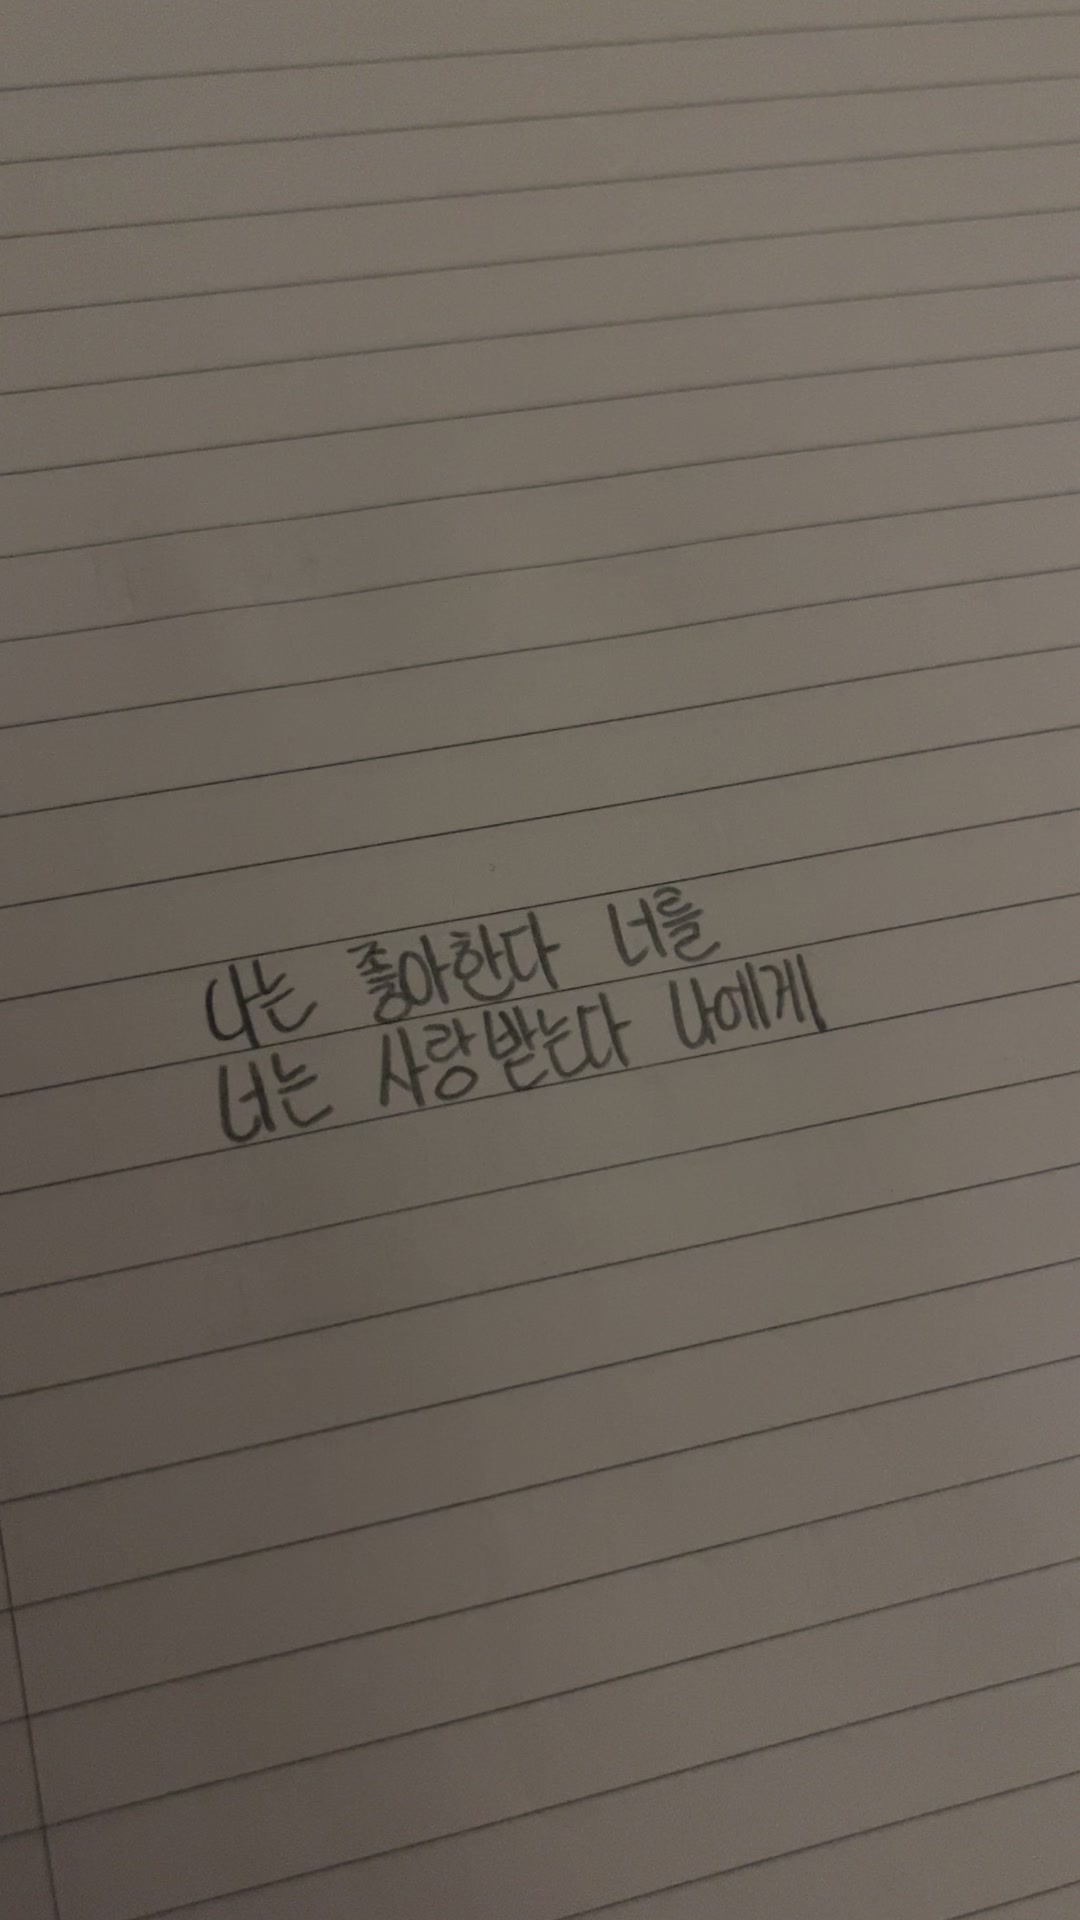 나는 좋아한다 너를
너는 사랑받는다 나에게